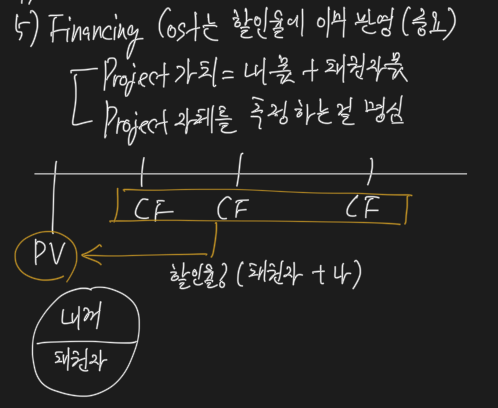 5) Financing Cost는 할인율에 이미 반영 (중요)
Project 가치 = 내 몫 + 채권자 몫
Project 자체를 측정하는걸 명심
CF CF CF
PV
할인율? (채권자 + 나)
내꺼
채권자